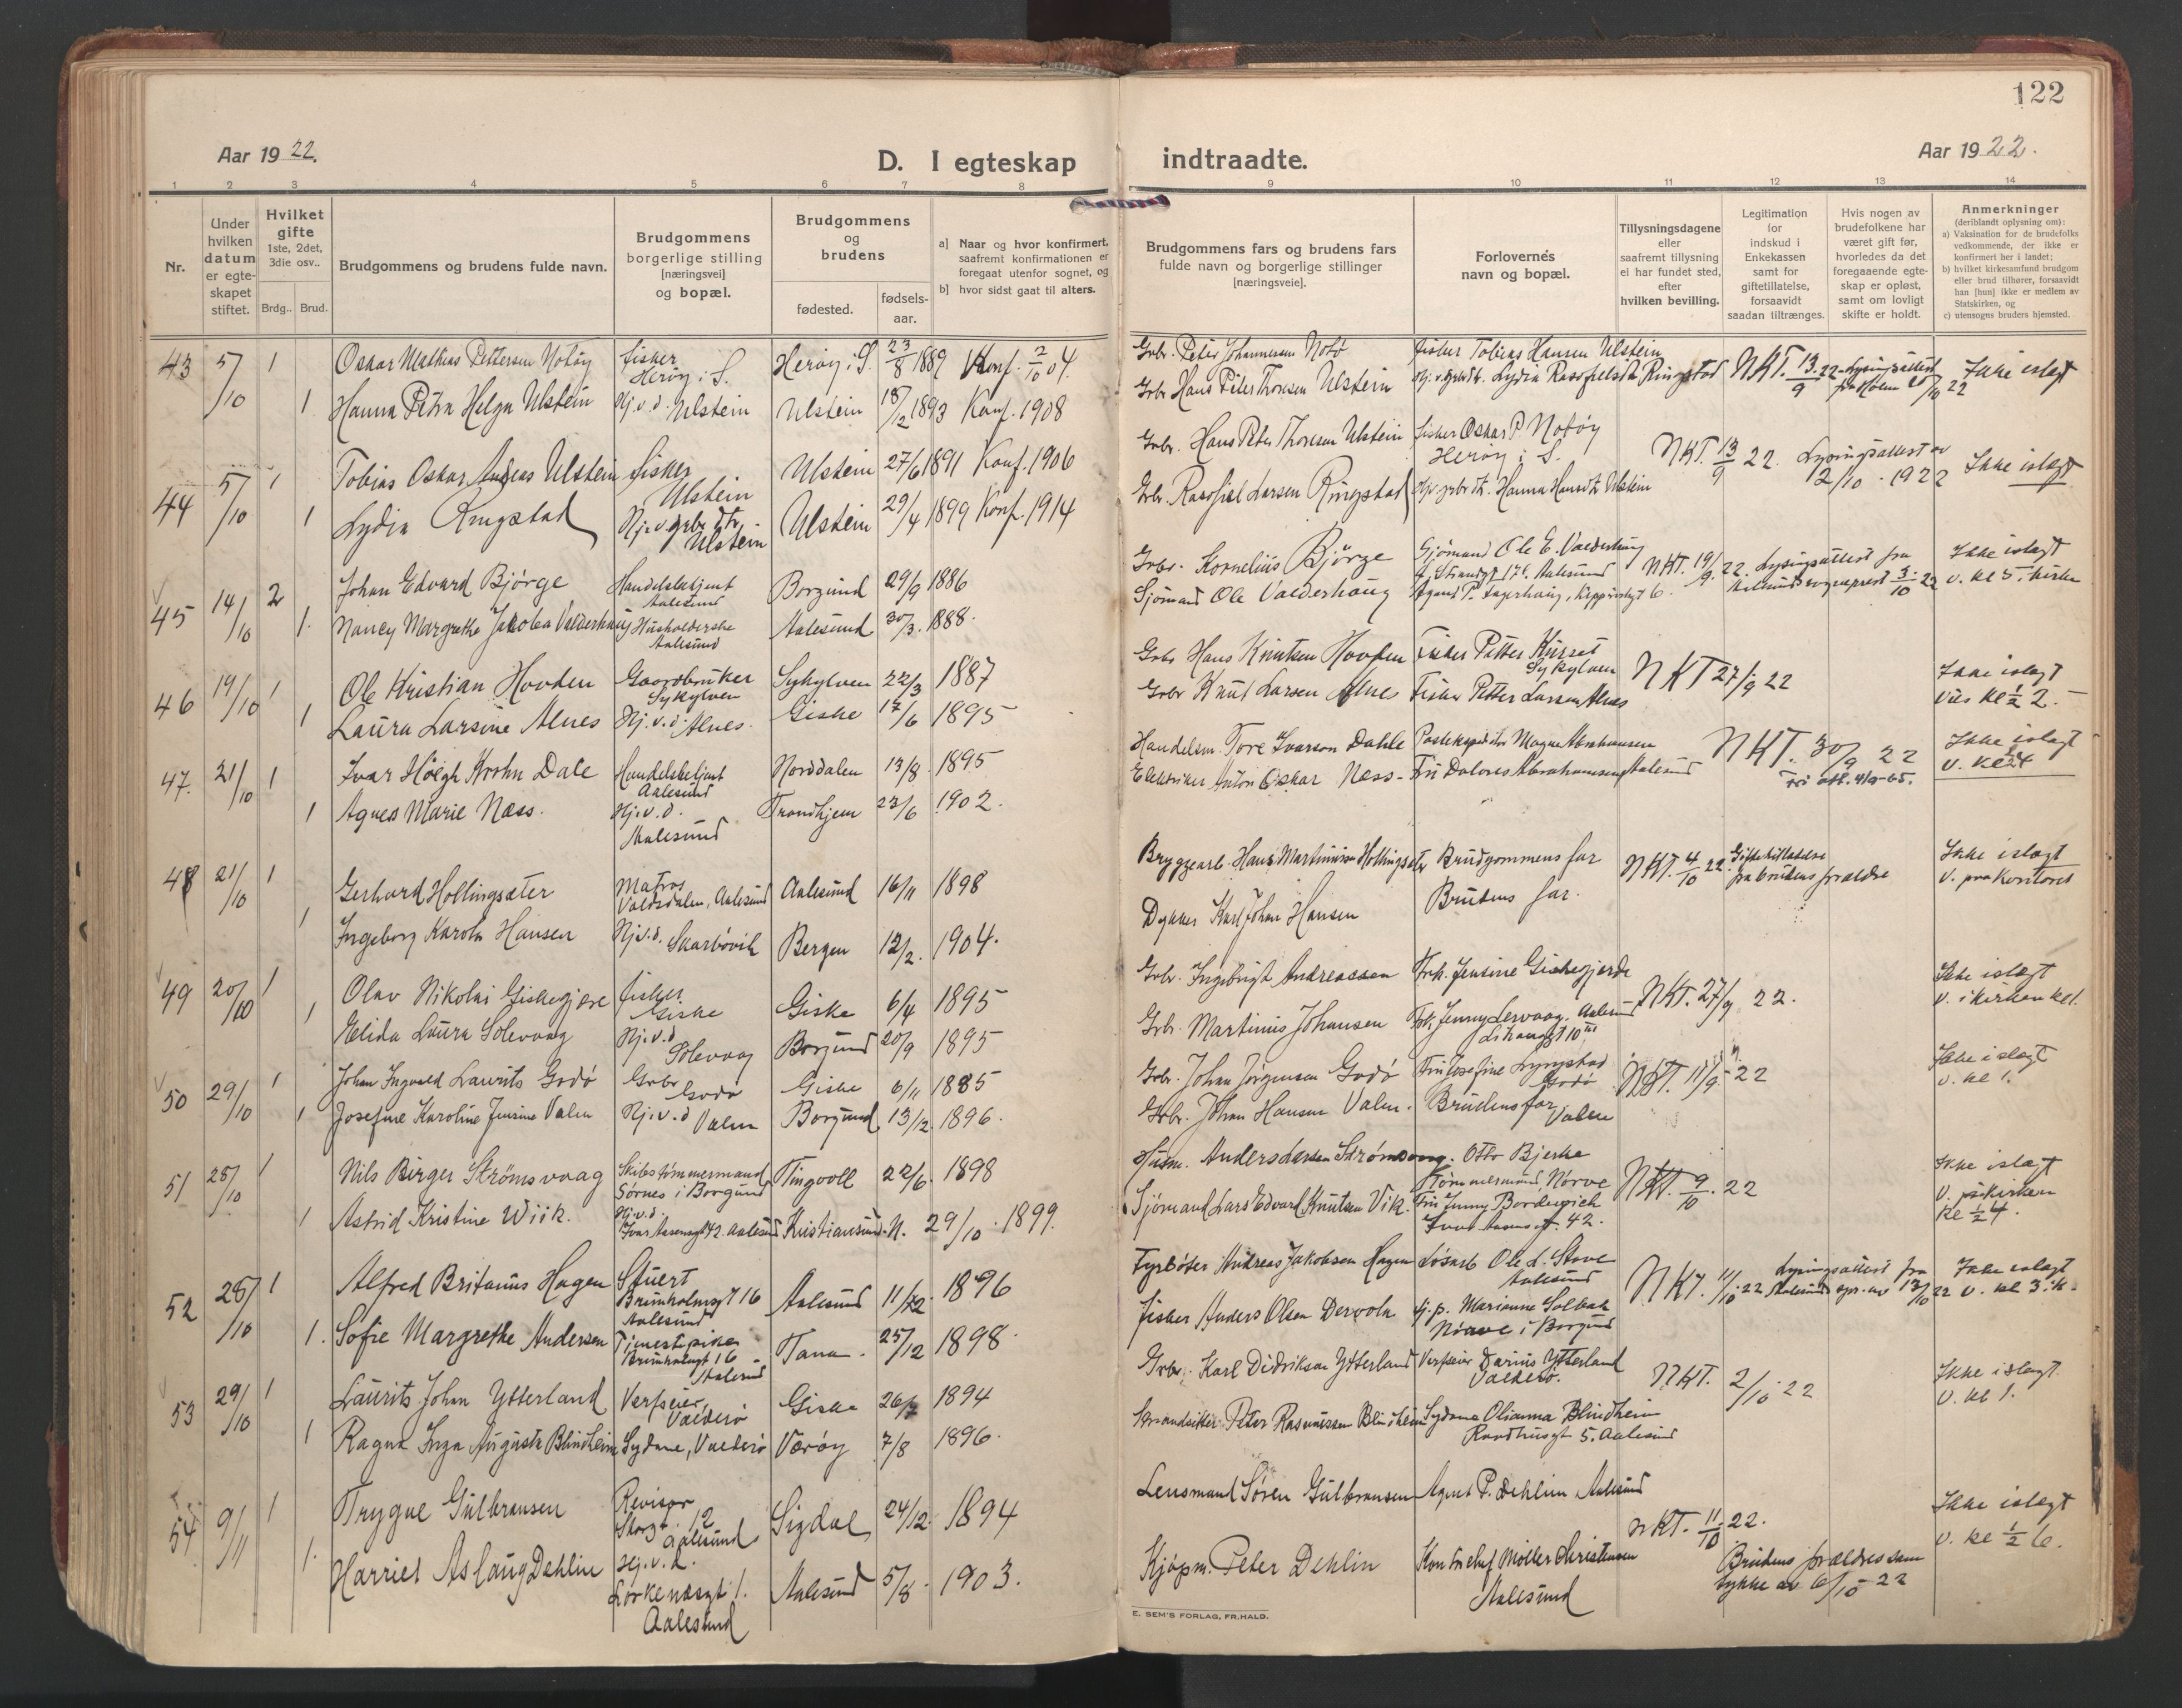 122
Aar 1922.
D. I egteskap indtraadte.
Aar 1922.
1 2 3 4 5 6 7 8 9 10 11 12 13 14
Nr.
Under hvilken datum er egteskapet stiftet.
Hvilket gifte
1ste, 2det, 3die osv..
Brdg.. Brud.
Brudgommens og brudens fulde navn.
Brudgommens borgerlige stilling [næringsvei] og bopæl.
Brudgommens og brudens
fødested. fødsels-aar.
a] Naar og hvor konfirmert, saafremt konfirmationen er foregaat utenfor sognet, og
b] hvor sidst gaat til alters.
Brudgommens fars og brudens fars fulde navn og borgerlige stillinger [næringsveie].
Forlovernes navn og bopæl.
Tillysningsdagene eller saafremt tillysning ei har fundet sted, efter hvilken bevilling.
Legitimation for indskud i Enkekassen samt for giftetillatelse, forsaavidt saadan tiltrænges.
Hvis nogen av brudefolkene har været gift før, hvorledes da det foregaaende egteskap er opløst, samt om lovligt skifte er holdt.
Anmerkninger
(deriblandt oplysning om):
a) Vaksination for de brudefolks vedkommende, der ikke er konfirmert her i landet;
b) hvilket kirkesamfund brudgom eller brud tilhører, forsaavidt han [hun] ikke er medlem av Statskirken, og
c) utensogns bruders hjemsted.
43 5/10 1 Oskar Mathias Pettersen Notøy fisker Herøy i S. Herøy i S. 23/8 1889 Konf. 2/10 04. Grbr. Peter Johannesen Notø fisker Tobias Hansen Ulstein NKT. 13/9 22 Lysingsattest fra Holm 20/10 22 Ikke islagt
1 Hanna Petra Helga Ulstein Hj.v.d. Ulstein Ulstein 18/12 1893 Konf. 1908 Grbr Hans Peter Thoresen Ulstein Hj.v. grbr dtr. Lydia Rasofielsdtr Ringstad
44 5/10 1 Tobias Oskar Andreas Ulstein fisker Ulstein Ulstein 27/6 1891 Konf. 1906 Grbr. Hans Peter Thoresen Ulstein fisker Oskar P. Notøy Herøy i S. NKT. 13/9 22. Lysingsattest av 12/10 1922 Ikke islagt
1 Lydia Ringstad Hj.v. grbr dtr. Ulstein Ulstein 29/4 1899 Konf. 1914 Grbr. Rasofiel Larsen Ringstad Hj.v. grbr dtr. Hanna Hansdtr Ulstein
45 14/10 2 Johan Edvard Bjørge Handelsbetjent Aalesund Borgund 29/9 1886 Grbr. Kornelius Bjørge Sjømand Ole E. Valderhaug Strandgt 17 Aalesund NKT. 19/9 22. Lysingsattest fra Aalesunds sogneprest 3/10 22 Ikke islagt v. kl 5. kirke
1. Nancy Margrethe Jakoba Valderhaug Husholderske Aalesund Aalesund 30/3. 1888. Sjømand Ole Valderhaug Agent P.
46 19/10 1 Ole Kristian Hovden Gaardbruker Sykylven Sykylven 22/3 1887 Grbr Hans Knutsen Hovden Fisker Petter Kurset Sykylven NKT 27/9 22 Ikke islagt vies kl 1/2 2.
1 Laura Larsine Alnes Hj.v.d. Alnes. Giske 17/6 1895 Grbr Knut Larsen Alnes Fisker Petter Larsen Alnes
47. 21/10 1 Ivar Høegh Krohn Dale Handelsbetjent Aalesund Norddalen 13/8. 1895 Handelsm. Tore Ivarson Dahle Postekspeditør Magne Abrahamsen NKT. 30/9 22 Ikke islagt v. kl 4
1 Agnes Marie Næss. Hj.v.d. Aalesund Trondhjem 23/6 1902. Elektriker Anton Oskar Næss Fru Dolores Abrahamsen Aalesund
48 21/10 1 Gerhard Hollingsæter Matros Volsdalen, Aalesund Aalesund 16/11 1898 Bryggearb. Hans Martinusen Hollingsæter Brudgommens far NKT. 4/10 22 Giftetillatelse fra brudens forældre Ikke islagt v. paa kontoret
1 Ingeborg Karola Hansen Hj.v.d. Skarbøvik Bergen 12/2. 1904. Dykker Karl Johan Hansen Brudens far.
49 20/10 1 Olav Nikolai Giskegjære fisker Giske Giske 6/4 1895 Grbr. Ingebrigt Andreassen Frk. Jensine Giskegjerde NKT. 27/9 22. Ikke islagt v. i kirken kl 1.
1 Elida Laura Solevaag Hj.v.d Solevaag Borgund 20/9 1895 Grbr. Martinus Johansen Frk. Jenny Lervaag. Aalesund
50 29/10 1 Johan Ingvald Laurits Godø Grbr Godø Giske 6/11 1885 Grbr. Johan Jørgensen Godø Fru Josefine Lyngstad Godø NKT. 11/9 22 Ikke islagt v. kl 1.
1 Josefine Karoline Jensine Valen Hj.v.d Valen Borgund 13/12. 1896. Grbr. Johan Hansen Valen. Brudens far Valen
51 28/10 1 Nils Birger Strømsvaag Skibstømmermand Sørnes i Borgund Tingvoll 22/6. 1898 Husm. Anders Larsen Strømsvaag. Otto Bjerke Tømmermand, Nørve NKT. 9/10. 22 Ikke islagt v. i kirken kl 1/2 4.
1 Astrid Kristine Wiik. Hj.v.d. Ivar Aasensgt 42. Aalesund Kristiansund N. 29/10. 1899. Sjømand Lars Edvard Knutsen Vik. Fru Jenny Ivar Aasensgt. 42.
52 28/10 1 Alfred Britanus Hagen Stuert Brunholmsgt 16 Aalesund Aalesund 11/12. 1896 Fyrbøter Andreas Jakobsen Hagen Løsarb Ole L. Stove Aalesund NKT 11/10 22 Lysingsattest fra Aalesunds spr. av 13/10 22 Ikke islagt v. kl 3. i k.
1. Sofie Margrethe Andersen Tjenestepike Brunholmgt 16 Aalesund Tana. 25/12 1898. fisker Anders Olsen Dervola Hj.p. Marianne Solbak Nørve i Borgund
53 29/10 1 Laurits Johan Ytterland Verfseier, Valderø Giske 26/7 1894 Grbr. Karl Didriksen Ytterland Verfseier Darius Ytterland Valderø. NKT. 2/10 22 Ikke islagt. v. kl 1.
1 Ragna Inga Augusta Blindheim Sydame, Valderø Værøy 7/8 1896. Strandsitter Peter Rasmussen Blindheim Sydame Olianna Blindheim Raadhusgt 5. Aalesund
54 9/11 1 Trygve Gulbransen Revisor Storgt. 12 Aalesund Sigdal 24/12. 1894 Lensmand Søren Gulbransen Agent P. Dehlin Aalesund NKT. 11/10 22. Ikke islagt v. kl 1/2 6.
1. Harriet Aslaug Dehlin Hj.v.d. Lorkenesgt 1. Aalesund Aalesund 5/8. 1903. Kjøpm. Peter Dehlin Kontorchef Møller Christensen Aalesund Brudens forældres samtykke av 6/10 22
E. SEM'S FORLAG, FR.HALD.